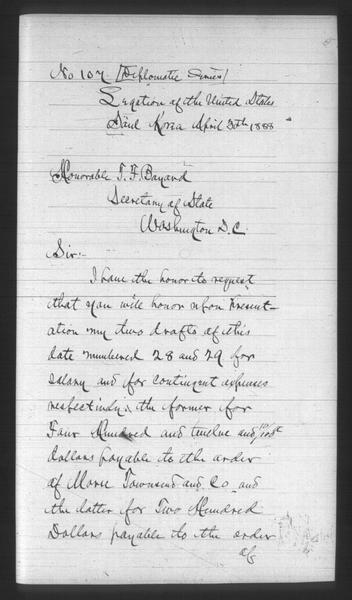 No 107. [Diplomatic Series]
Legation of the United States
Saul Korea April 30th 1888
Honorable T. F. Bayard
Secretary of State
Washington D.C.
Sir:-
I have the honor to request
that you will honor upon present-
ation my two drafts of this
date numbered 28 and 29 for
salary and for contingent expenses
respectively: the former for
Four Hundred and twelve and 10/100
dollars payable to the order
of Morse Townsend and Co. and
the latter for Two Hundred
Dollars payable to the order
of